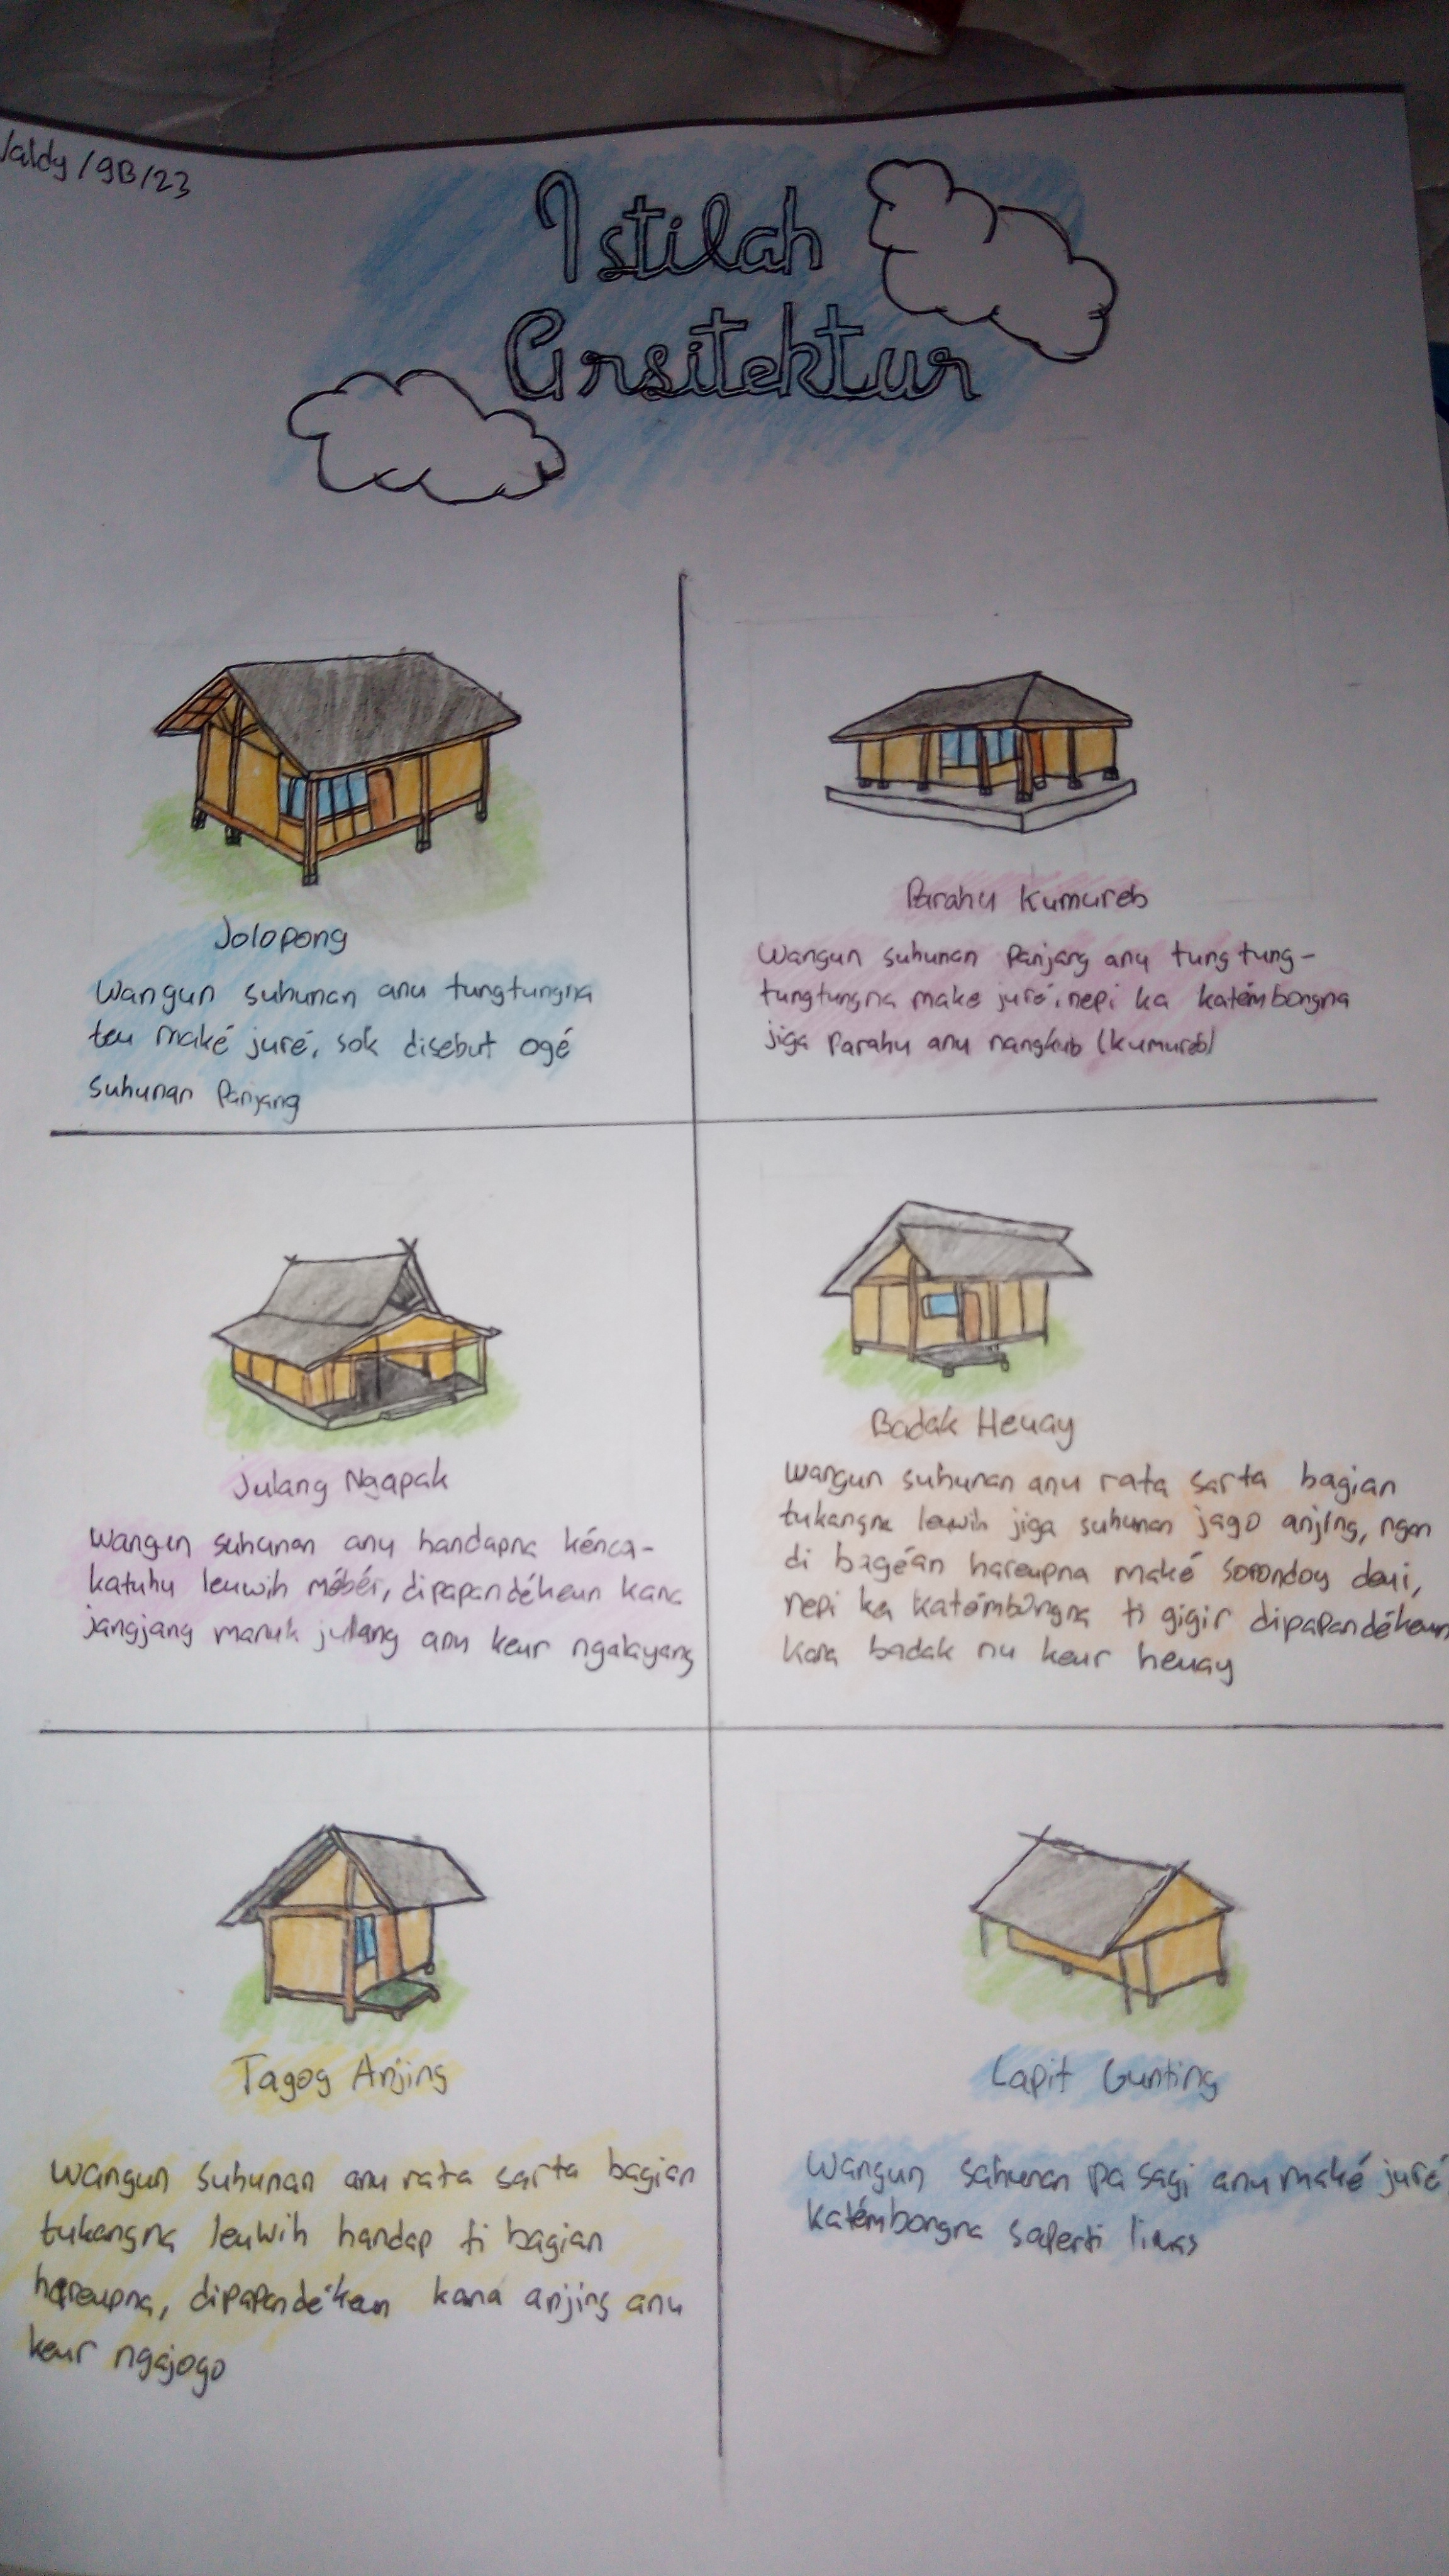 Valdy / 9B / 23
Istilah
Arsitektur
Jolopong
Wangun suhunan anu tungtungna
teu maké juré, sok disebut ogé
suhunan Panjang
Parahu Kumureb
Wangun suhunan Panjang anu tungtung-
tungtungna make juré, nepi ka katémbongna
jiga Parahu anu nangkub (kumureb)
Julang Ngapak
Wangun suhunan anu handapna kénca-
katuhu leuwih mébér, dipapandékeun kana
jangjang manuk julang anu keur ngalayang
Badak Heuay
Wangun suhunan anu rata sarta bagian
tukangna leuwih jiga suhunan jago anjing, ngan
di bagéan hareupna maké sorondoy deui,
nepi ka katémbongna ti gigir dipapandékeun
kana badak nu keur heuay
Tagog Anjing
Wangun suhunan anu rata sarta bagian
tukangna leuwih handap ti bagian
hareupna, dipapandékeun kana anjing anu
keur ngajogo
Capit Gunting
Wangun sahunan pa sagi anu maké juré
katémbongna saperti limas